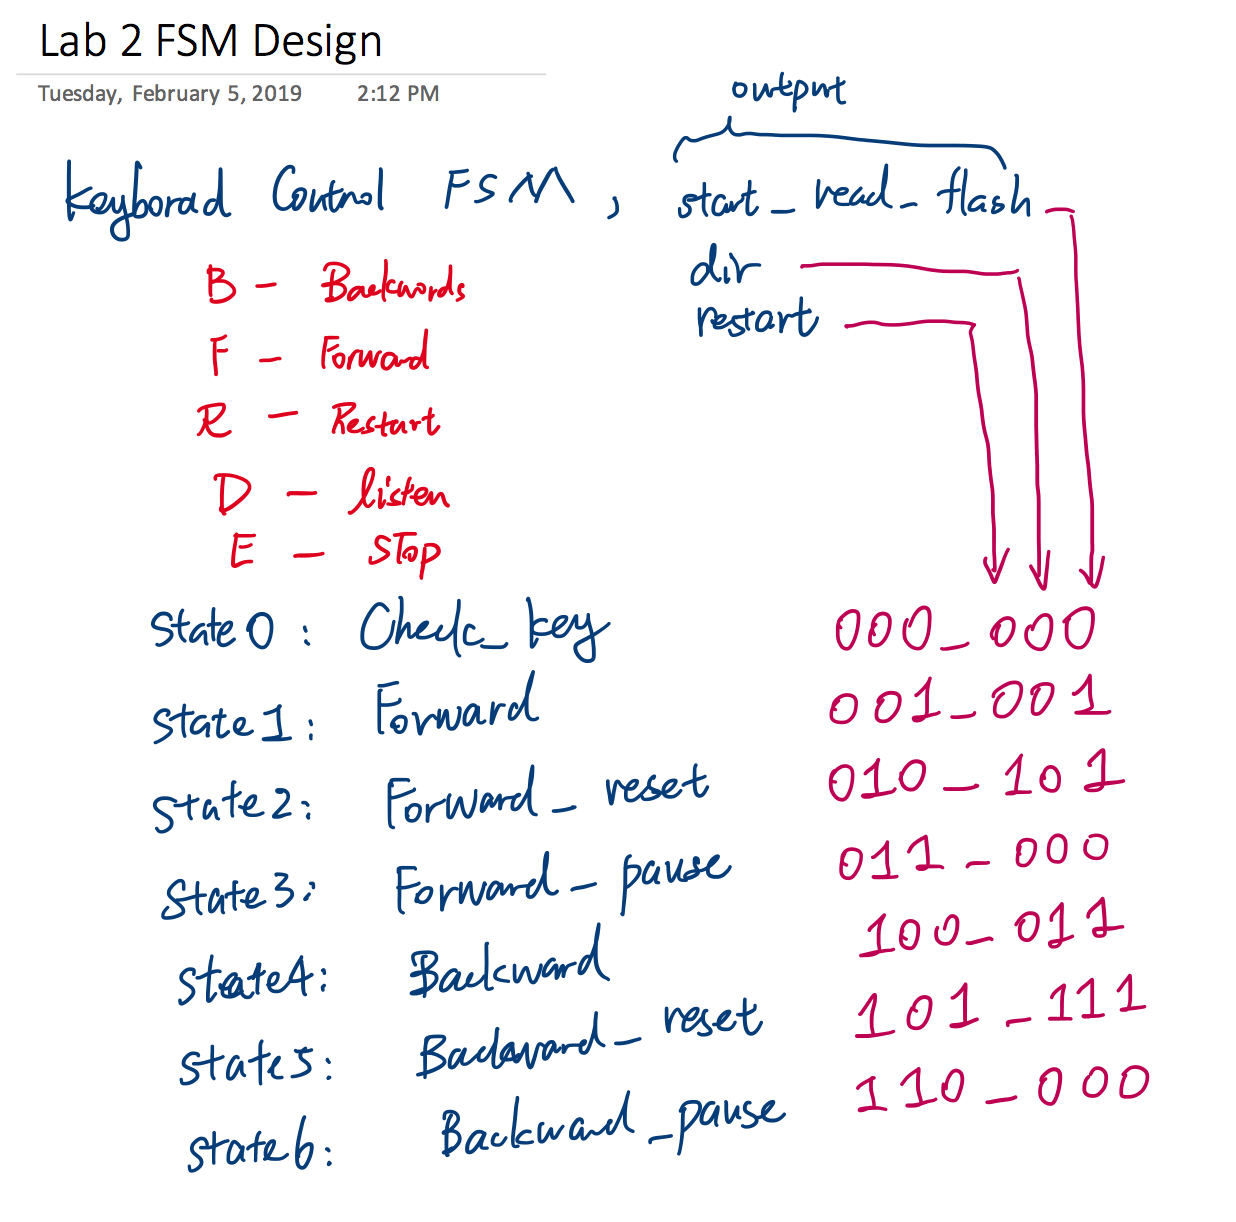 Lab 2 FSM Design
Tuesday, February 5, 2019 2:12 PM
output
keyborad Control FSM , start_read_flash
dir
restart
B - Backwords
F - Forward
R - Restart
D - listen
E - STop
State 0 : Check_key 000_000
State 1 : Forward 001_001
State 2 : Forward_reset 010_101
State 3 : Forward_pause 011_000
State 4 : Backward 100_011
State 5 : Backward_reset 101_111
State 6 : Backward_pause 110_000